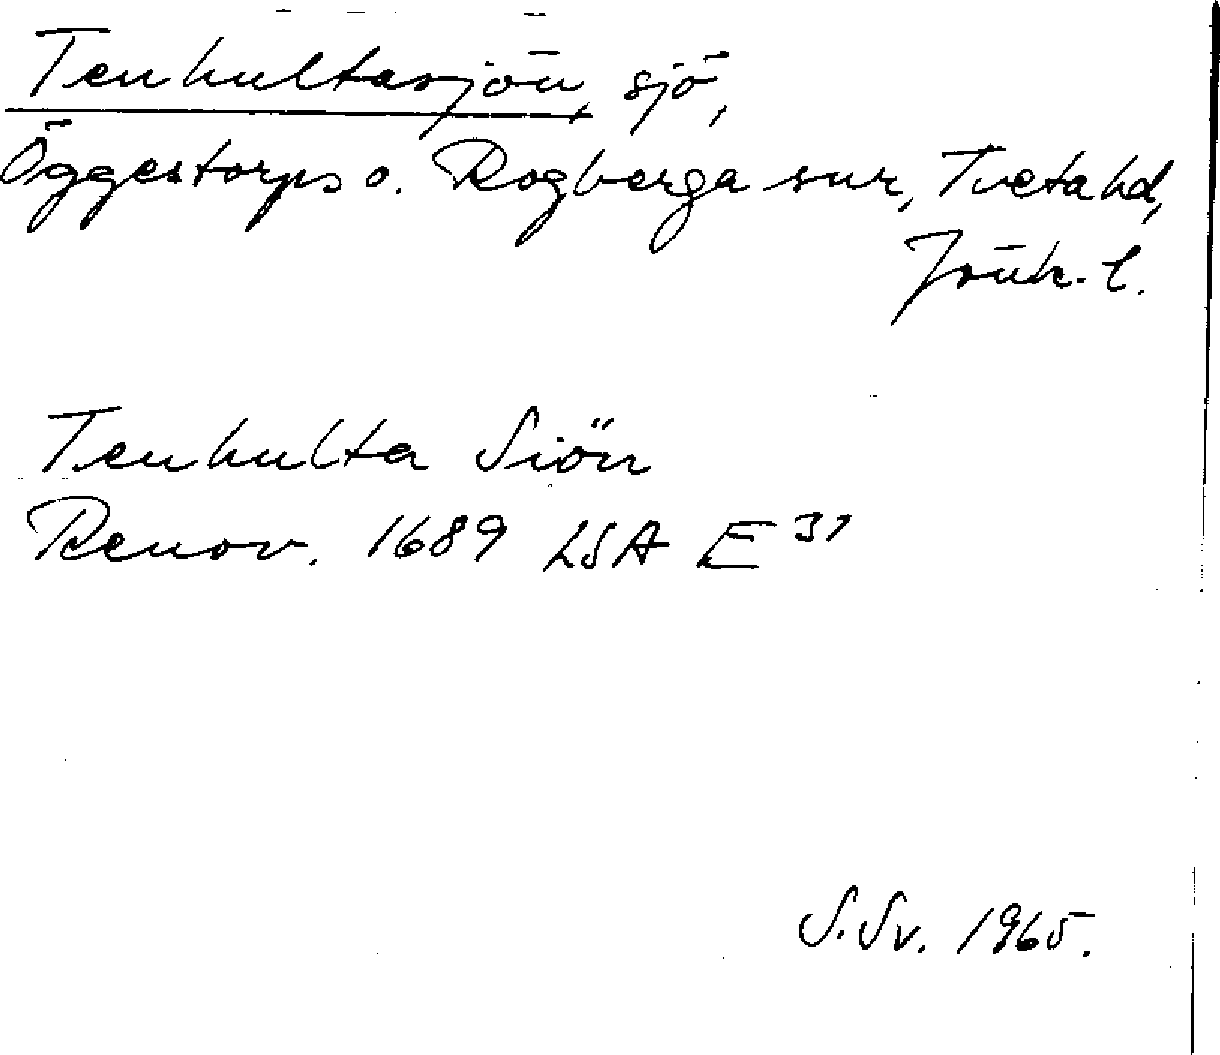 Tenhultasjön, sjö,
Öggestorps o. Rogberga snr, Tveta hd,
Jönk. l.
Tenhulta Siön
Renov. 1689 LSA E 31
S. Sv. 1965.